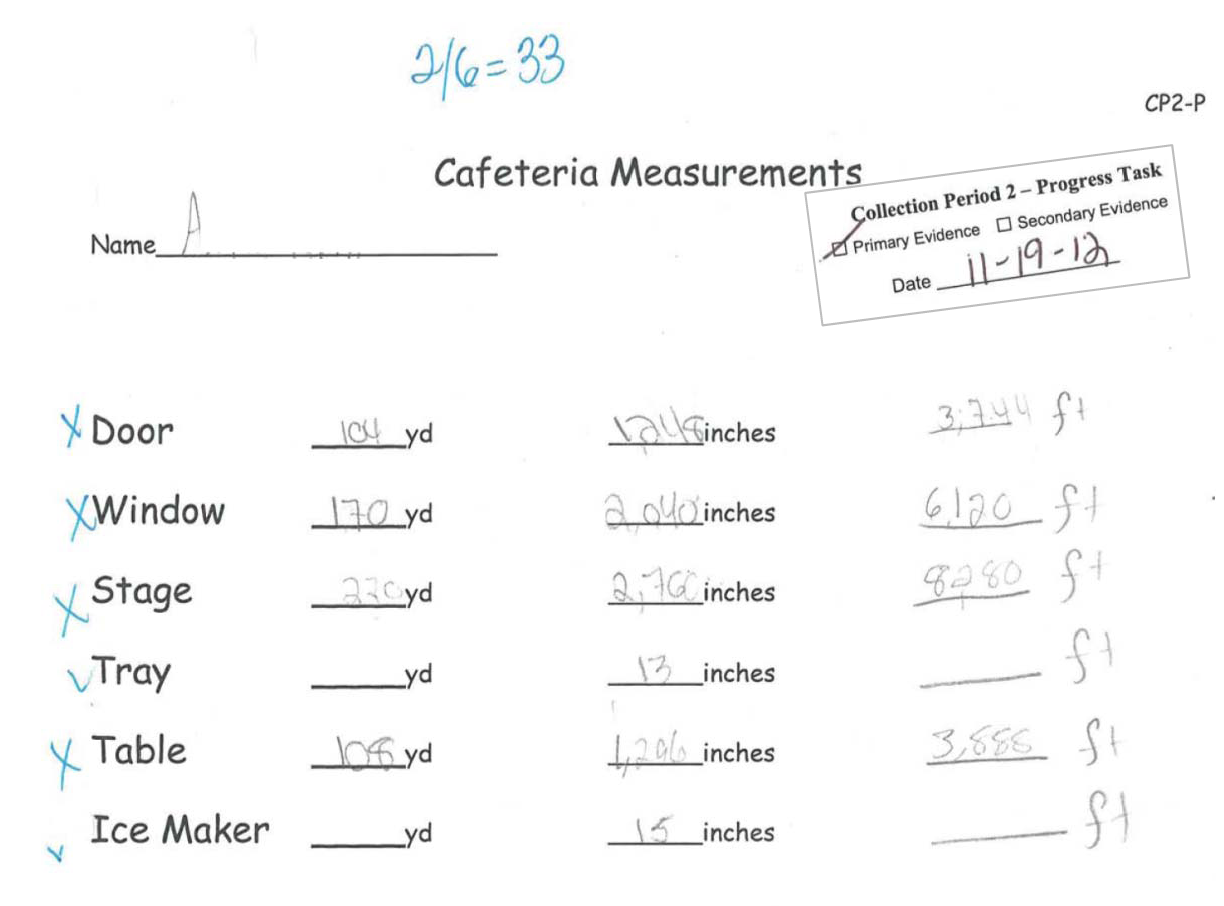 2/6=33
CP2-P
Cafeteria Measurements
Collection Period 2 – Progress Task
Primary Evidence Secondary Evidence
Date 11-19-12
Name A
X Door 104 yd 1,248 inches 3,744 ft
X Window 170 yd 2,040 inches 6,120 ft
X Stage yd 2,760 inches 8,280 ft
✓ Tray ___ yd 13 inches ___ ft
X Table 108 yd 1,296 inches 3,888 ft
✓ Ice Maker ___ yd 15 inches ___ ft